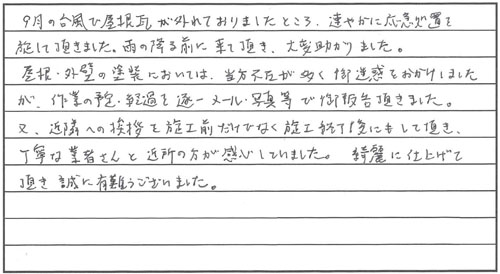 9月の台風で屋根瓦が外れておりましたところ、速やかに応急処置を
施して頂きました。雨の降る前に来て頂き、大変助かりました。
屋根・外壁の塗装においては、当方不在が多く御迷惑をおかけしました
が、作業の予定・経過を逐一メール・写真等で御報告頂きました。
又、近隣への挨拶を施工前だけでなく施工終了後にもして頂き、
丁寧な業者さんと近所の方が感心していました。綺麗に仕上げて
頂き誠に有難うございました。